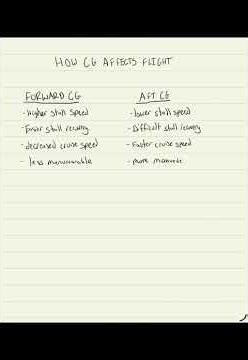 HOW CG AFFECTS FLIGHT
FORWARD CG
- higher stall speed
- Easier stall recovery
- decreased cruise speed
- less maneuverable
AFT CG
- lower stall speed
- Difficult stall recovery
- Faster cruise speed
- more